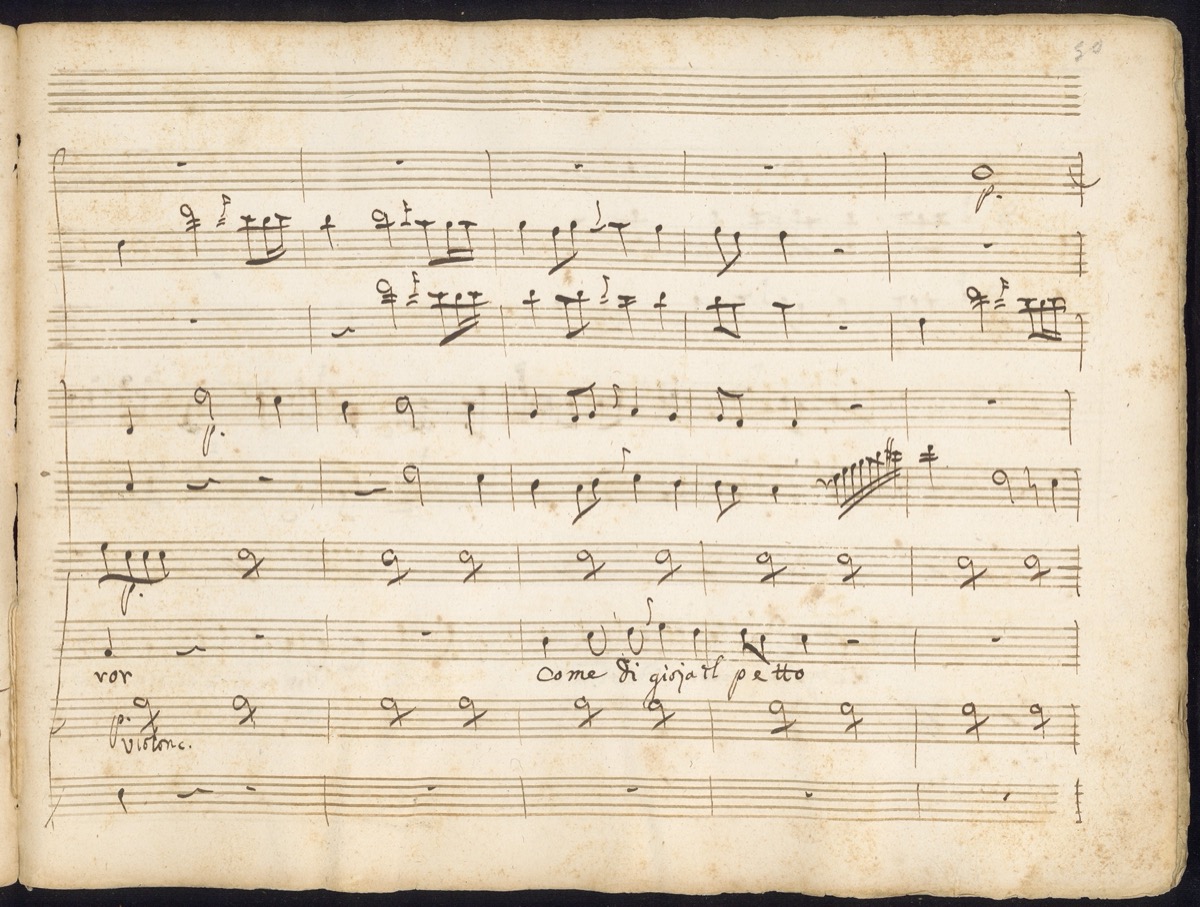 50
p.
p.
p.
ror
Come di gioja il petto
p.
violonc.